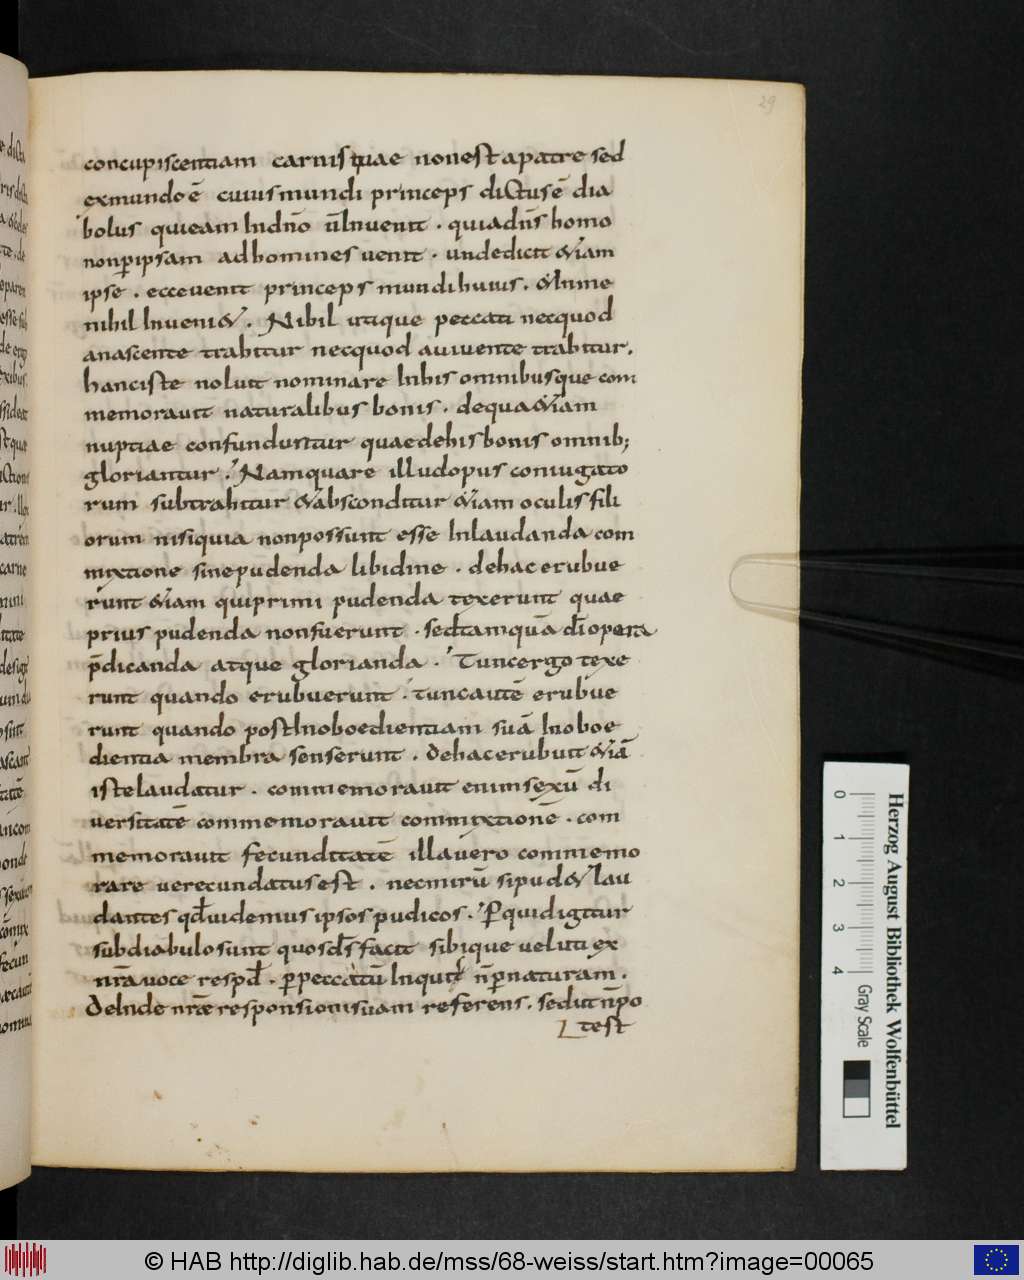 29
concupiscentiam carnis quae non est a patre sed
ex mundo ē cuius mundi princeps dictus ē dia
bolus qui eam in dn̄o n̄ invenit · quia dn̄s homo
non p̄ ipsam ad homines venit · unde dicit & iam
ipse · ecce venit princeps mundi huius · & in me
nihil inveni& · Nihil utique peccati nec quod
a nascente trahitur nec quod a vivente trahitur ·
hanc iste noluit nominare in his omnibus que com
memoravit naturalibus bonis · de qua &iam
nuptiae confunduntur quae de his bonis omnib;
gloriantur · Nam quare illud opus coniugato
rum subtrahitur & absconditur &iam oculis fili
orum nisi quia non possunt esse in laudanda com
mixtione sine pudenda libidine · de hac erubue
runt &iam qui primi pudenda texerunt quae
prius pudenda non fuerunt · sed tamquā dī opera
p̄dicanda atque glorianda · Tunc ergo texe
runt quando erubuerunt · tunc autē erubue
runt quando post inoboedientiam suā inoboe
dientia membra senserunt · de hac erubuit &iā
iste laudatur · commemoravit enim sexū di
versitatē commemoravit commixtionē · com
memoravit fecunditatē illa vero commemo
rare verecundatus est · nec mirū si pud& lau
dantes qđ videmus ipsos pudicos · P̄ qui digitur
sub diabulo sunt quos dī facit sibique veluti ex
nr̄a voce respđ · p̄ peccatū inquit n̄ p̄ naturam ·
Deinde nr̄ae responsionis suam referens · sed ut n̄ po
test
0
1
2
3
4
Gray Scale
Herzog August Bibliothek Wolfenbüttel
© HAB http://diglib.hab.de/mss/68-weiss/start.htm?image=00065